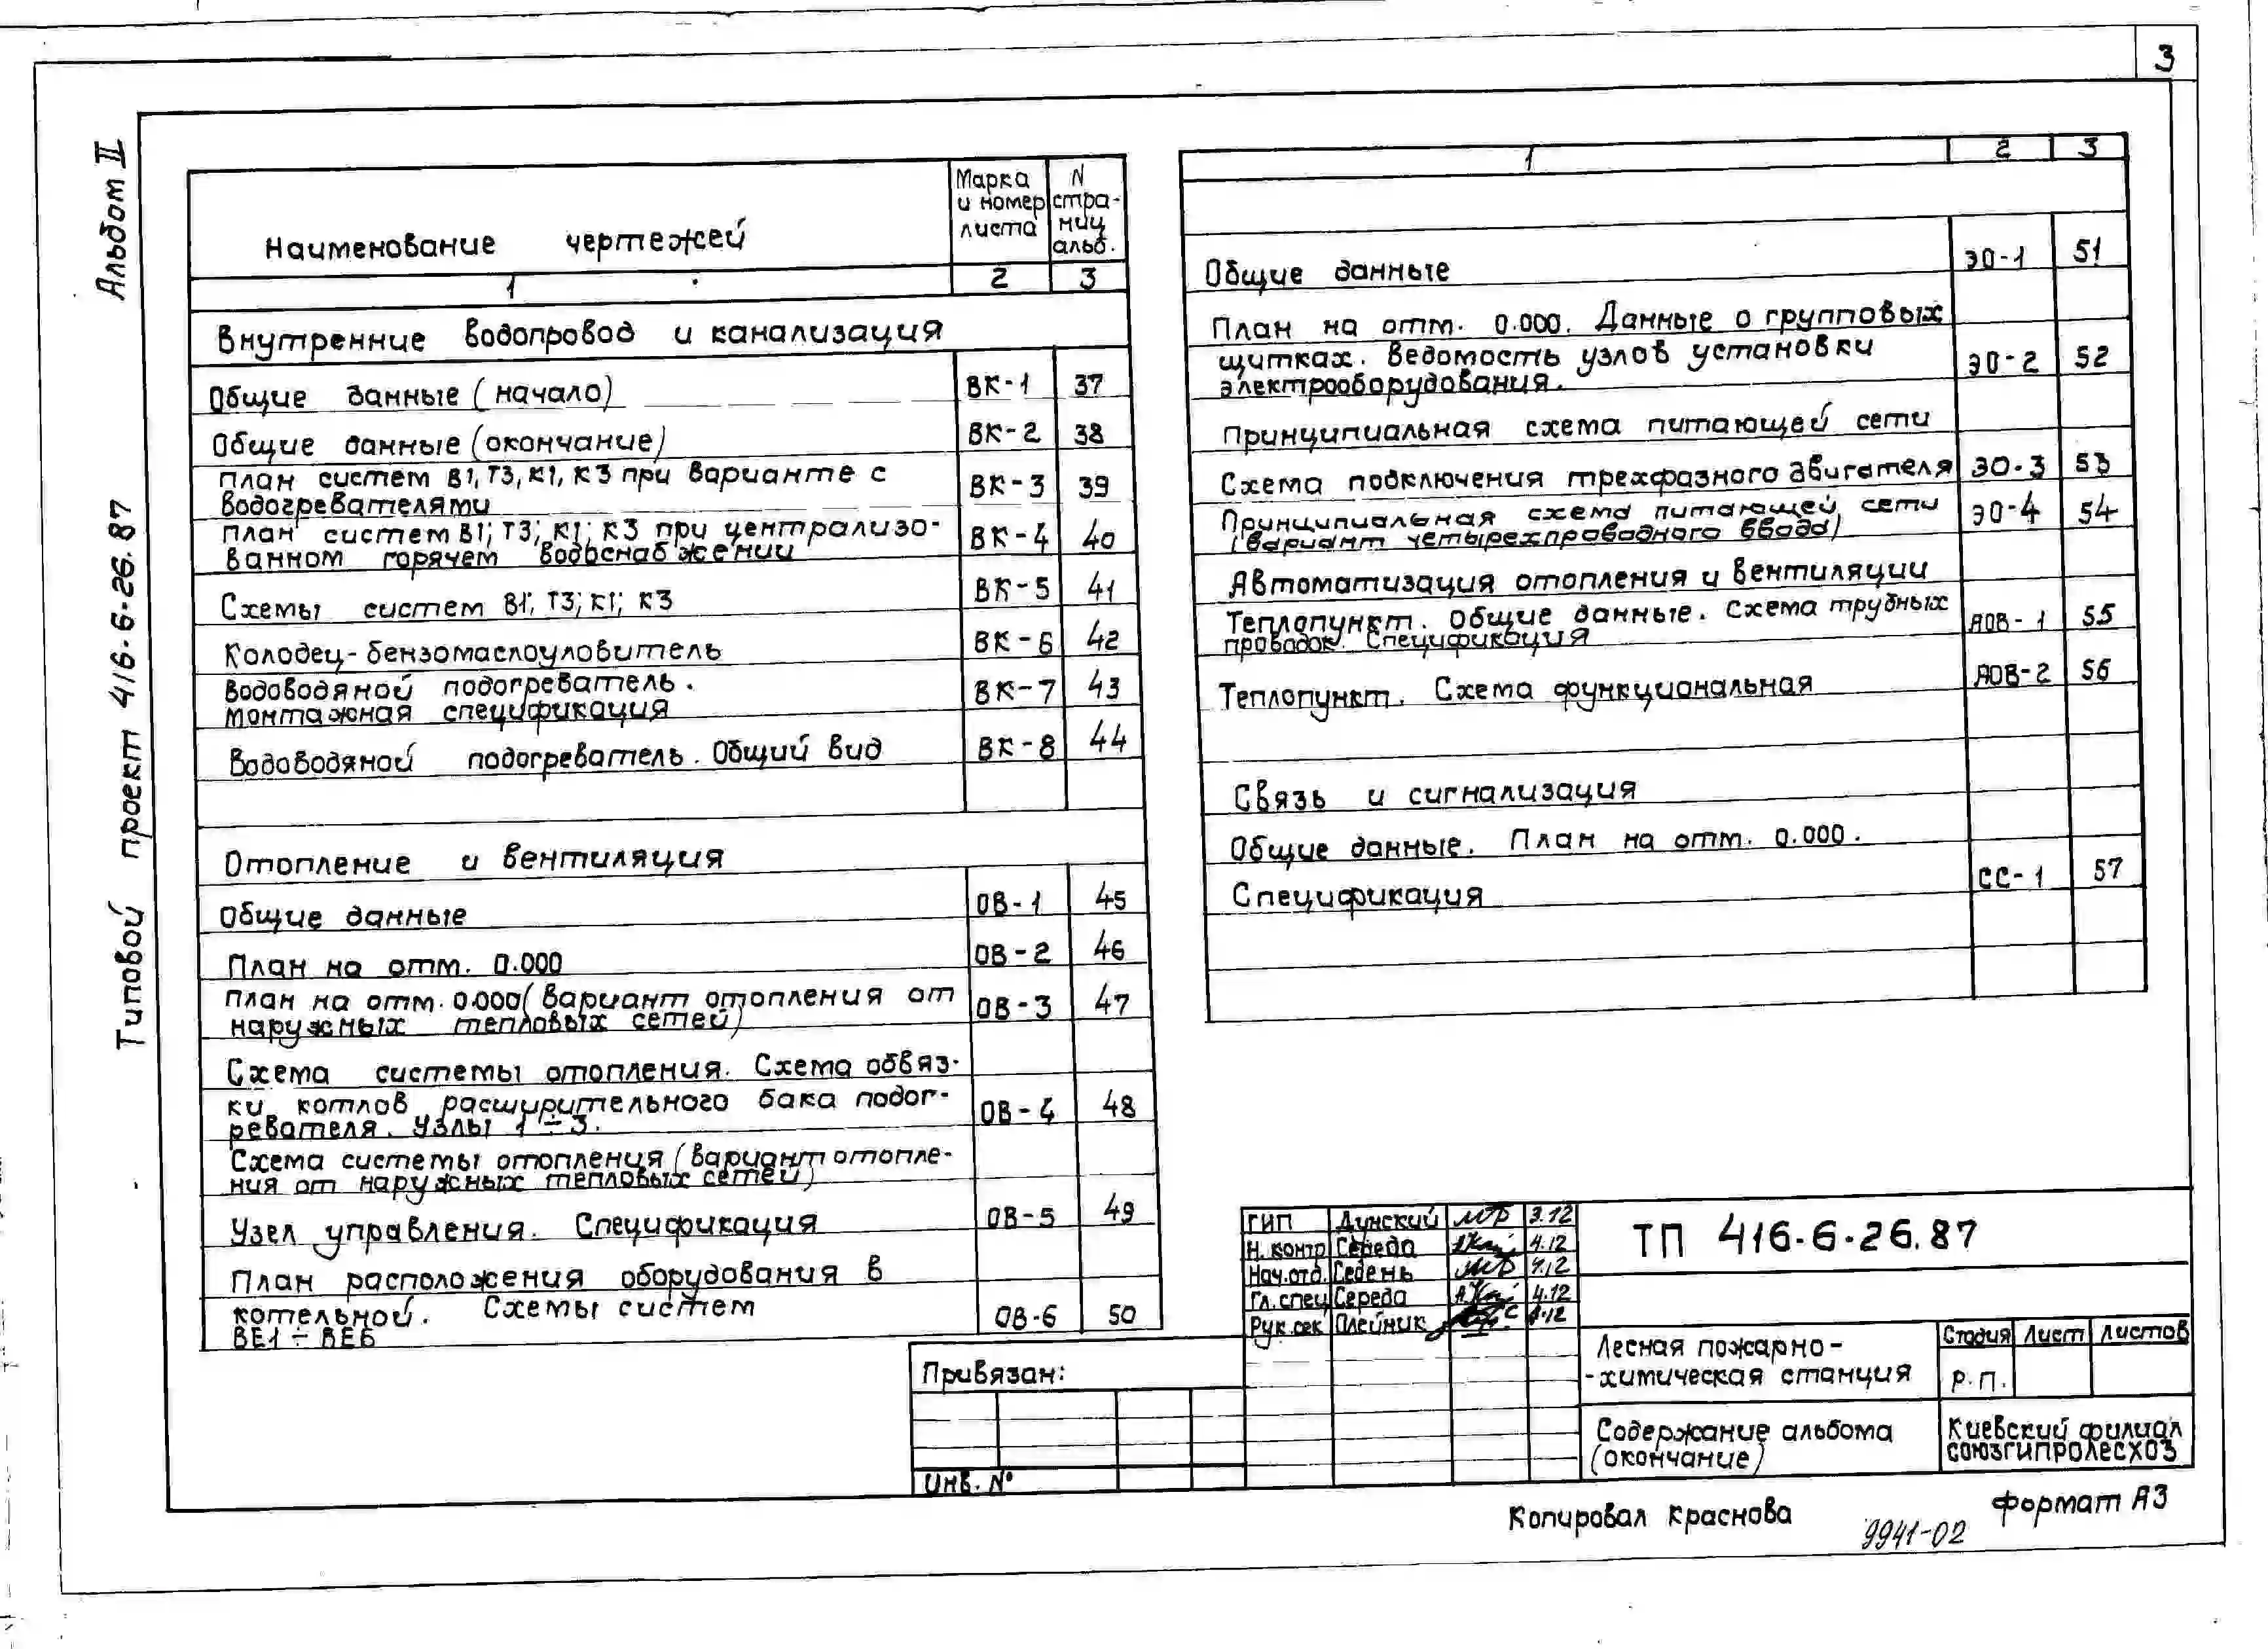 3
Альбом II
Типовой проект 416-6-26.87
Наименование чертежей
Марка и номер листа
N страниц альб.
1 2 3
Внутренние водопровод и канализация
Общие данные (начало) ВК-1 37
Общие данные (окончание) ВК-2 38
План систем В1, Т3, К1, К3 при варианте с
водогревателями ВК-3 39
План систем В1; Т3; К1; К3 при централизо-
ванном горячем водоснабжении ВК-4 40
Схемы систем В1; Т3; К1; К3 ВК-5 41
Колодец-бензомаслоуловитель ВК-6 42
Водоводяной подогреватель.
Монтажная спецификация ВК-7 43
Водоводяной подогреватель. Общий вид ВК-8 44
Отопление и вентиляция
Общие данные ОВ-1 45
План на отм. 0.000 ОВ-2 46
План на отм. 0.000 (вариант отопления от
наружных тепловых сетей) ОВ-3 47
Схема системы отопления. Схема обвяз-
ки котлов расширительного бака подог-
ревателя. Узлы 1÷3. ОВ-4 48
Схема системы отопления (вариант отопле-
ния от наружных тепловых сетей)
Узел управления. Спецификация ОВ-5 49
План расположения оборудования в
котельной. Схемы систем ОВ-6 50
ВЕ1÷ВЕ6
1 2 3
Общие данные ЭО-1 51
План на отм. 0.000. Данные о групповых
щитках. Ведомость узлов установки
электрооборудования. ЭО-2 52
Принципиальная схема питающей сети
Схема подключения трехфазного двигателя ЭО-3 53
Принципиальная схема питающей сети
(вариант четырехпроводного ввода) ЭО-4 54
Автоматизация отопления и вентиляции
Теплопункт. Общие данные. Схема трубных
проводок. Спецификация АОВ-1 55
Теплопункт. Схема функциональная АОВ-2 56
Связь и сигнализация
Общие данные. План на отм. 0.000.
Спецификация СС-1 57
ГИП Дунский 3.12
Н. контр Середа 4.12
Нач. отд. Седень 4.12
Гл. спец Середа 4.12
Рук. сек Олейник 4.12
ТП 416-6-26.87
Лесная пожарно-
-химическая станция
Стадия Лист Листов
Р.П.
Содержание альбома
(окончание)
Киевский филиал
союзгипролесхоз
Привязан:
Инв. №
Копировал Краснова
9941-02
Формат А3